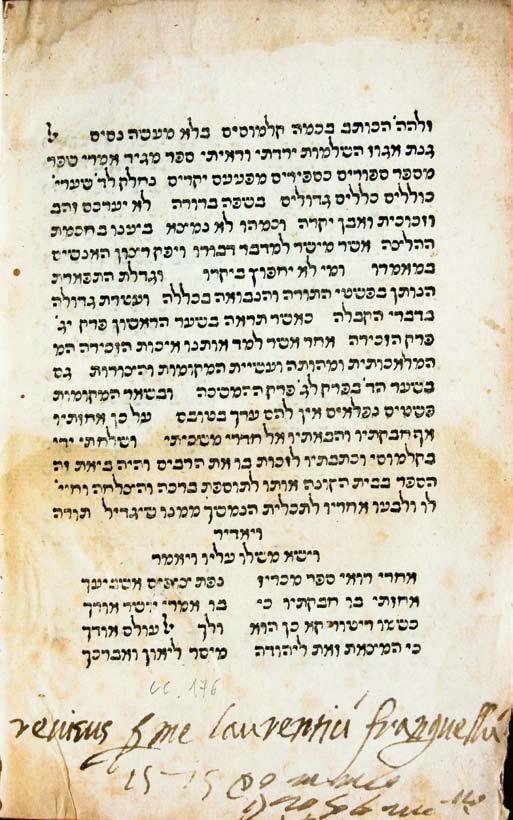 זלהה הכותב בכמה קלמוסים בלא מעשה נסים על
גנת אגוז השלמות ירדתי וראיתי ספר מגיד אמרי שפר
מספר ספורים כספירים מפעעם יקרים נחלק לד׳ שערי׳
כוללים כללים גדולים בשפה ברורה לא יערכם זהב
וזכוכית ואבן יקרה וכמהו לא נמצא ביענו בחכמת
ההלצה אשר מישר למדבר דבורו ויפק רצון האנשים
במאמרו ומי לא יחפוץ ביקרו וגדלת התפארת
הנותן בפשטי התורה והנבואה בכללה ועטרת גדולה
בדברי הקבלה כאשר תראה בשער הראשון פרק יג׳
פרק הזכירה אחד אשר למד אותנו איכות הזכירה המ
המלאכותית ומהותה ועשיית המקומות והצורות גם
בשער הד׳ בפרק לג׳ פרק ההמשכה ובשאר המקומות
פשטים נפלאים אין להם ערך בטובם על כן אחזתיו
אף חבקתיו והבאתיו אל חדרי משכיתי ושלחתי ידי
בקלמוסי וכתבתיו לזכות בו את הרבים והיה ביאת זה
הספר בבית הקונה אותו לתוספת ברכה והצלחה וחיי׳
לו ולזרעו אחריו לתכלית הנמשך ממנו שיגדיל תורה
ויאדיר
וישא משלו עליו ויאמר
אחרי רואי ספר מכריז נפת צופים אשביעך
אחזתי בו חבקתיו כי בו אמרי יושר אורך
כששו כן הוא ולך על עולם אודך
כי המצאת זאת ליהודה מיסר ליאון ואברכך
cc. 176
revisus p me laurentiu franguellu
1575